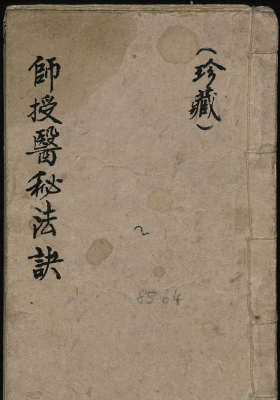 (珍藏)
師授醫秘法訣
2
8504